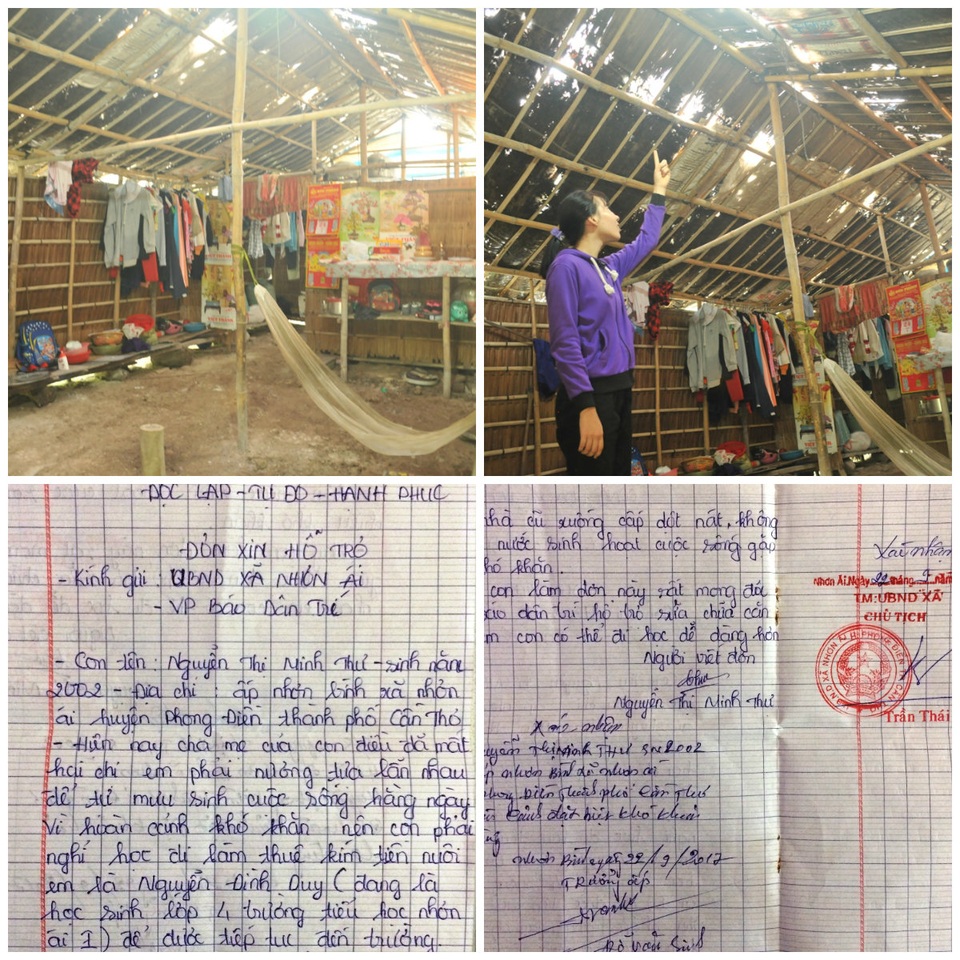 ĐỘC LẬP - TỰ DO - HẠNH PHÚC
ĐƠN XIN HỖ TRỢ
- Kính gửi : UBND XÃ NHƠN ÁI
- VP Báo Dân Trí
- Con tên : Nguyễn Thị Minh Thư - sinh năm
2002 - Địa chỉ : ấp nhơn bình xã nhơn
ái huyện Phong Điền thành phố Cần Thơ
- Hiện nay cha mẹ của con điều đã mất
hai chị em phải nương tựa lẫn nhau
để tự mưu sinh cuộc sống hằng ngày
vì hoàn cảnh khó khăn nên con phải
nghỉ học đi làm thuê kím tiền nuôi
em là Nguyễn Đình Duy ( đang là
học sinh lớp 4 trường tiểu học nhơn
ái I ) để được tiếp tục đến trường.
nhà cũ xuống cấp dột nát, không
nước sinh hoạt cuộc sống gặp
khó khăn.
con làm đơn này rất mong đợi
báo dân trí hỗ trợ sửa chữa căn
em con có thể đi học dễ dàng hơn
Người viết đơn
Thư
Nguyễn Thị Minh Thư
Xác nhận
Nguyễn Thị Minh THƯ SN 2002
ấp nhơn Bình xã nhơn ái
Phong Điền Thành phố Cần Thơ
cảnh đặt biệt khó khăn
nhơn Bình ngày 22/9/2017
TRưởng ấp
Xác nhận
Nhơn Ái, Ngày 22 tháng 9 năm
TM: UBND XÃ
CHỦ TỊCH
Trần Thái